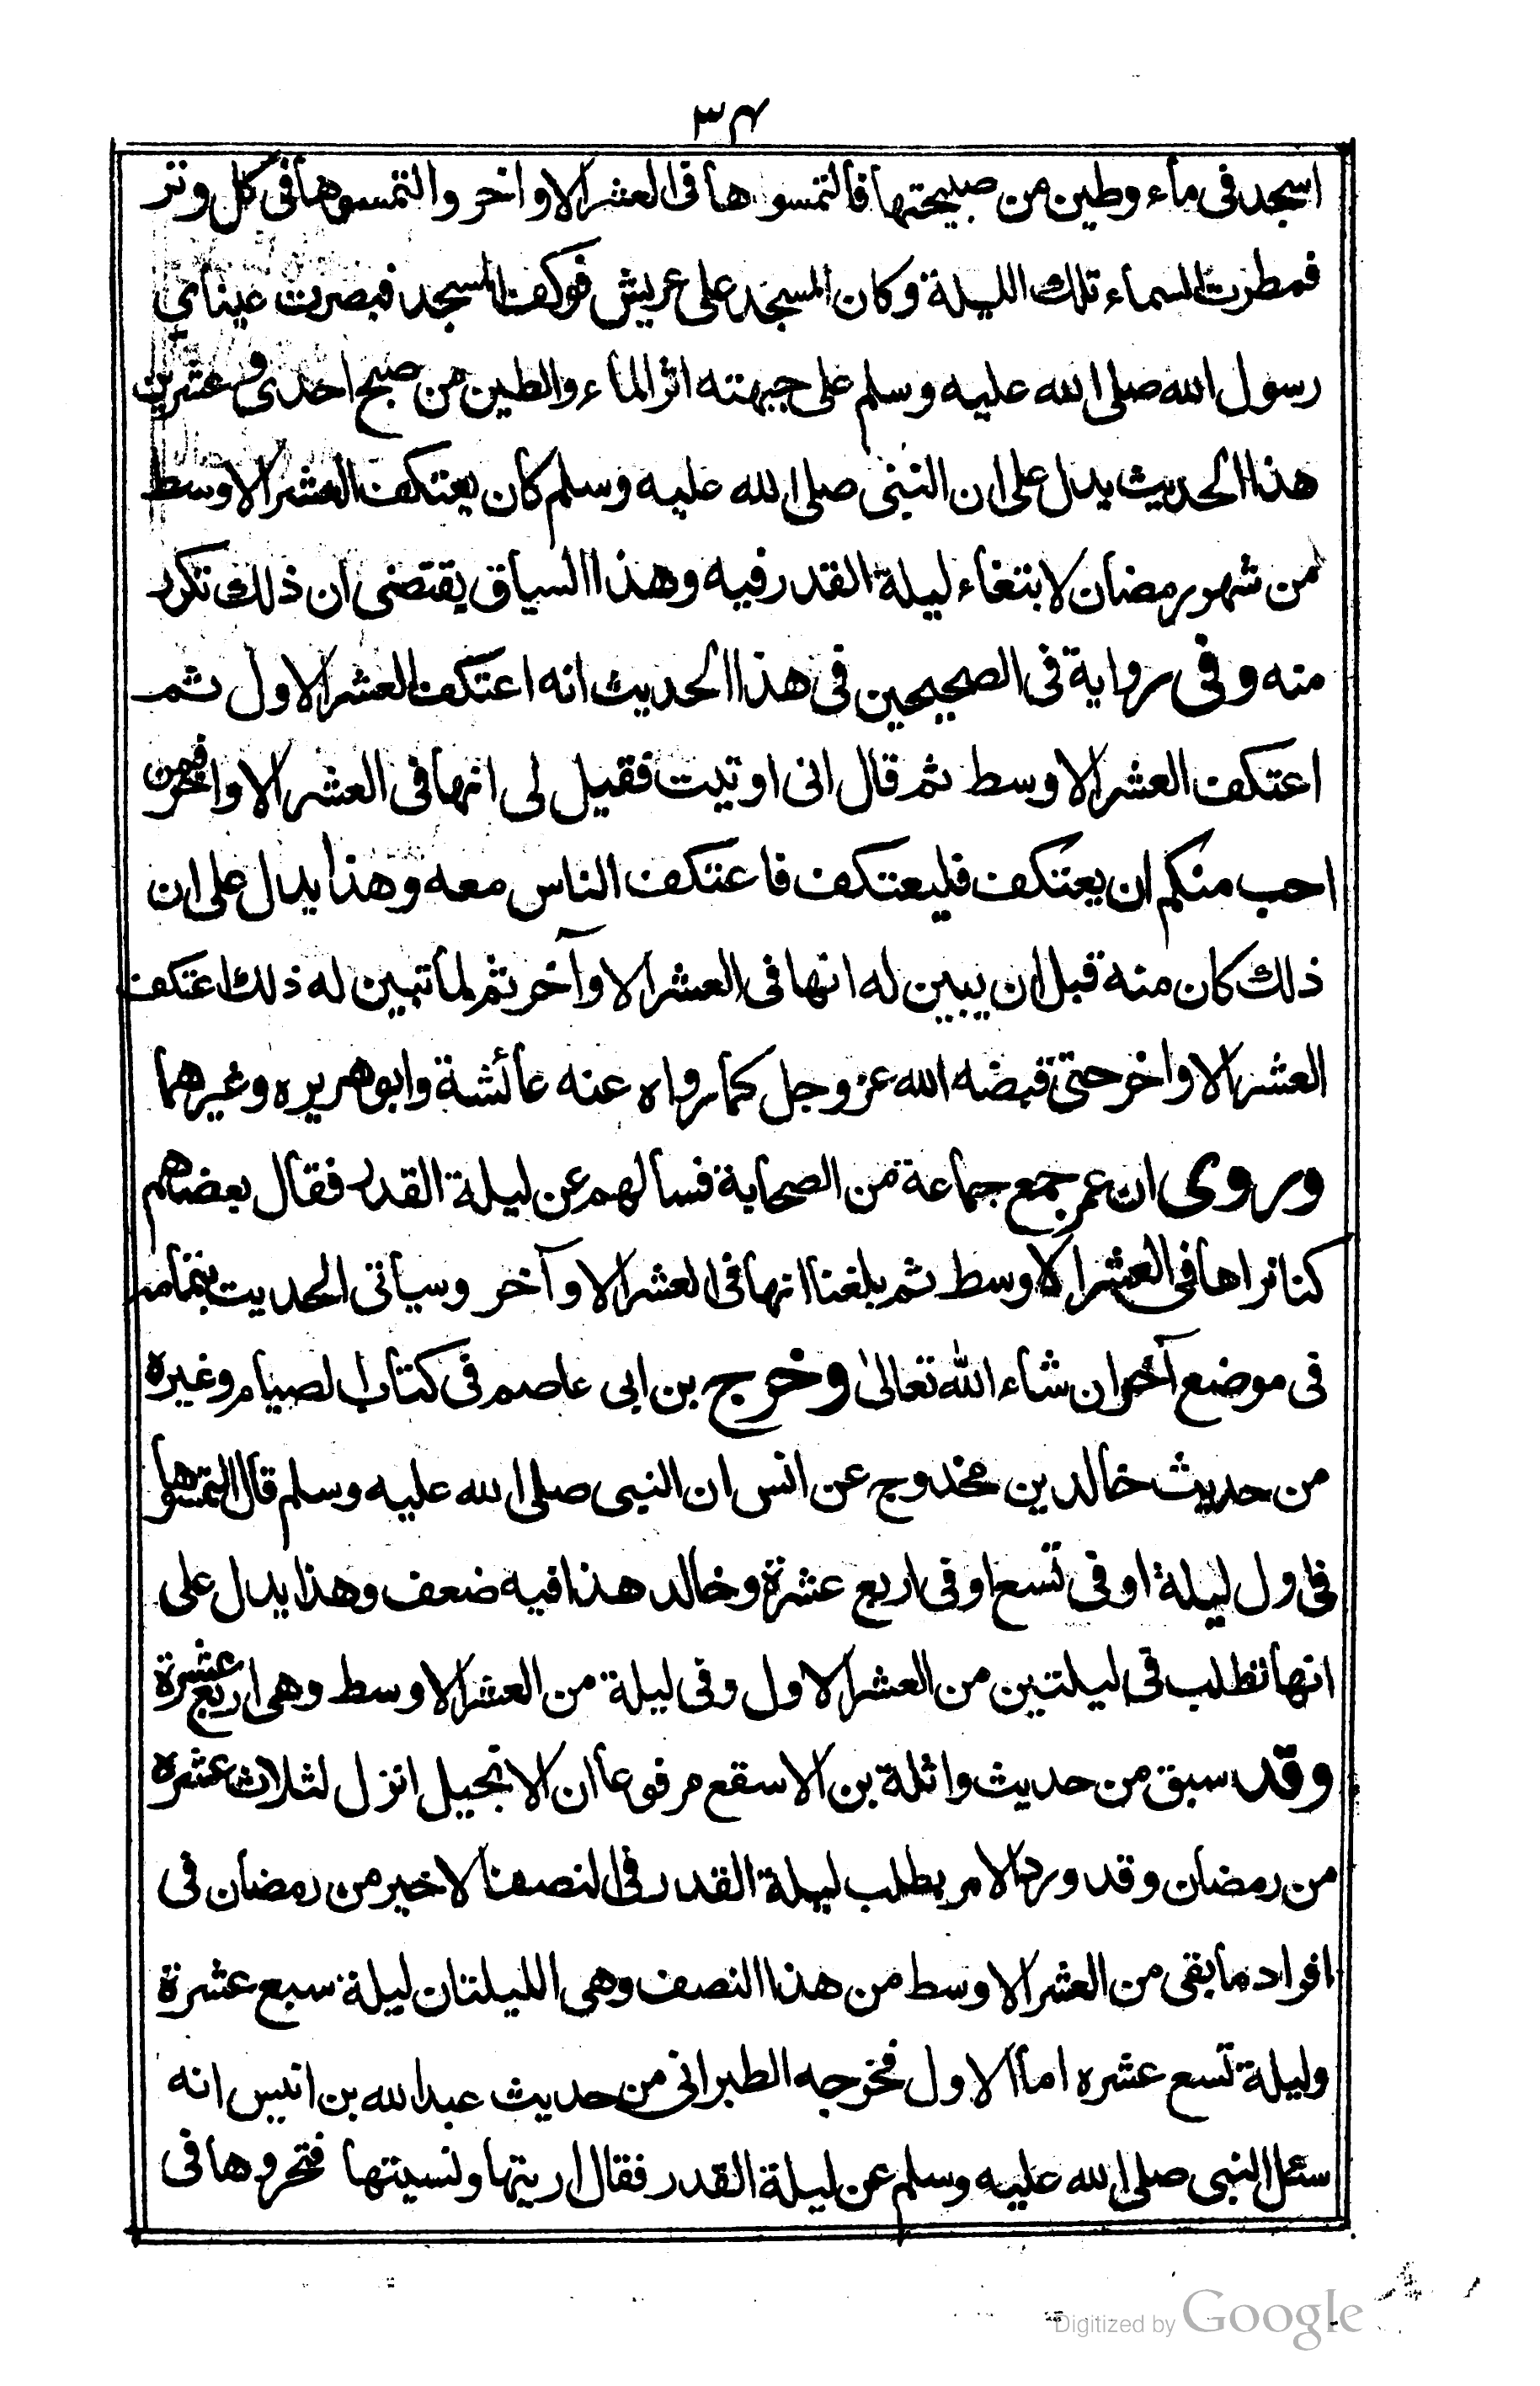 ٣٤
اسجد فى ماء وطين من صبيحتها فالتمسوها فى العشر الاواخر والتمسوها فى كل وتر
فمطرت السماء تلك الليلة وكان المسجد على عريش فوكف المسجد فبصرت عيناي
رسول الله صلى الله عليه وسلم على جبهته اثر الماء والطين من صبح احدى وعشرين
هذا الحديث يدل على ان النبى صلى الله عليه وسلم كان يعتكف العشر الاوسط
من شهر رمضان لابتغاء ليلة القدر فيه وهذا السياق يقتضى ان ذلك تكرر
منه وفى رواية فى الصحيحين فى هذا الحديث انه اعتكف العشر الاول ثم
اعتكف العشر الاوسط ثم قال انى اوتيت فقيل لى انها فى العشر الاواخر فمن
احب منكم ان يعتكف فليعتكف فاعتكف الناس معه وهذا يدل على ان
ذلك كان منه قبل ان يبين له انها فى العشر الاوآخر ثم لما تبين له ذلك اعتكف
العشر الاواخر حتى قبضه الله عز وجل كما رواه عنه عائشة وابوهريره وغيرهما
وروى ان عمر جمع جماعة من الصحابة فسالهم عن ليلة القدر فقال بعضهم
كنا نراها فى العشر الاوسط ثم بلغنا انها فى العشر الاوآخر وسياتى الحديث بتمامه
فى موضع آخر ان شاء الله تعالىٰ وخرج بن ابى عاصم فى كتاب الصيام وغيره
من حديث خالد بن مخدوج عن انس ان النبى صلى الله عليه وسلم قال التمسوها
فى اول ليلة او فى تسع او فى اربع عشرة وخالد هذا فيه ضعف وهذا يدل على
انها تطلب فى ليلتين من العشر الاول وفى ليلة من العشر الاوسط وهى اربع عشرة
وقد سبق من حديث واثلة بن الاسقع مرفوعا ان الانجيل انزل لثلاث عشره
من رمضان وقد ورد الامر بطلب ليلة القدر فى النصف الاخير من رمضان فى
افراد ما بقى من العشر الاوسط من هذا النصف وهى الليلتان ليلة سبع عشرة
وليلة تسع عشره اما الاول فخرجه الطبرانى من حديث عبد الله بن انيس انه
سئل النبى صلى الله عليه وسلم عن ليلة القدر فقال اريتها ونسيتها فتحروها فى
Digitized by Google